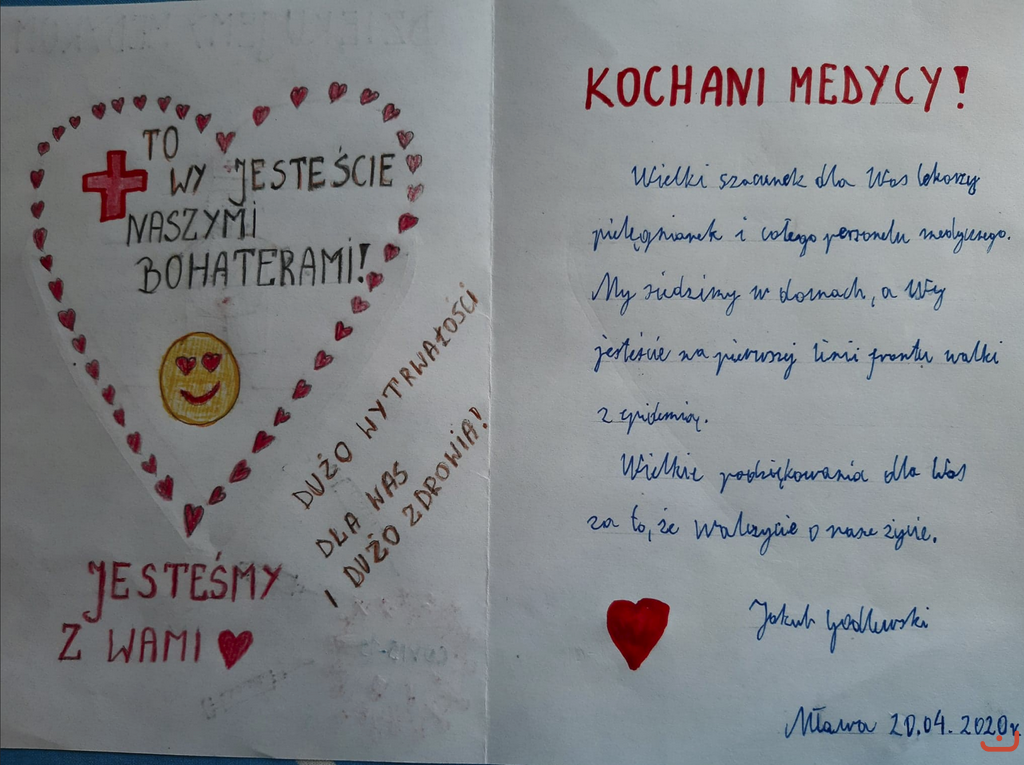 TO
WY JESTEŚCIE
NASZYMI
BOHATERAMI!
DUŻO WYTRWAŁOŚCI
DLA WAS
I DUŻO ZDROWIA!
JESTEŚMY
Z WAMI
KOCHANI MEDYCY!
Wielki szacunek dla Was lekarzy
pielęgniarek i całego personelu medycznego.
My siedzimy w domach, a Wy
jesteście na pierwszej linii frontu walki
z epidemią.
Wielkie podziękowania dla Was
za to, że walczycie o nasze życie.
Jakub Godlewski
Mława 20.04.2020r.